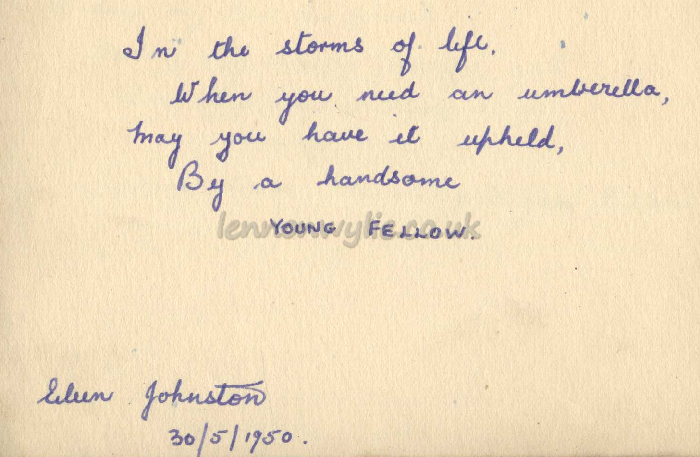 In the storms of life.
When you need an umberella,
May you have it upheld,
By a handsome
lennonwylie.co.uk
YOUNG FELLOW.
Eileen Johnston
30/5/1950.